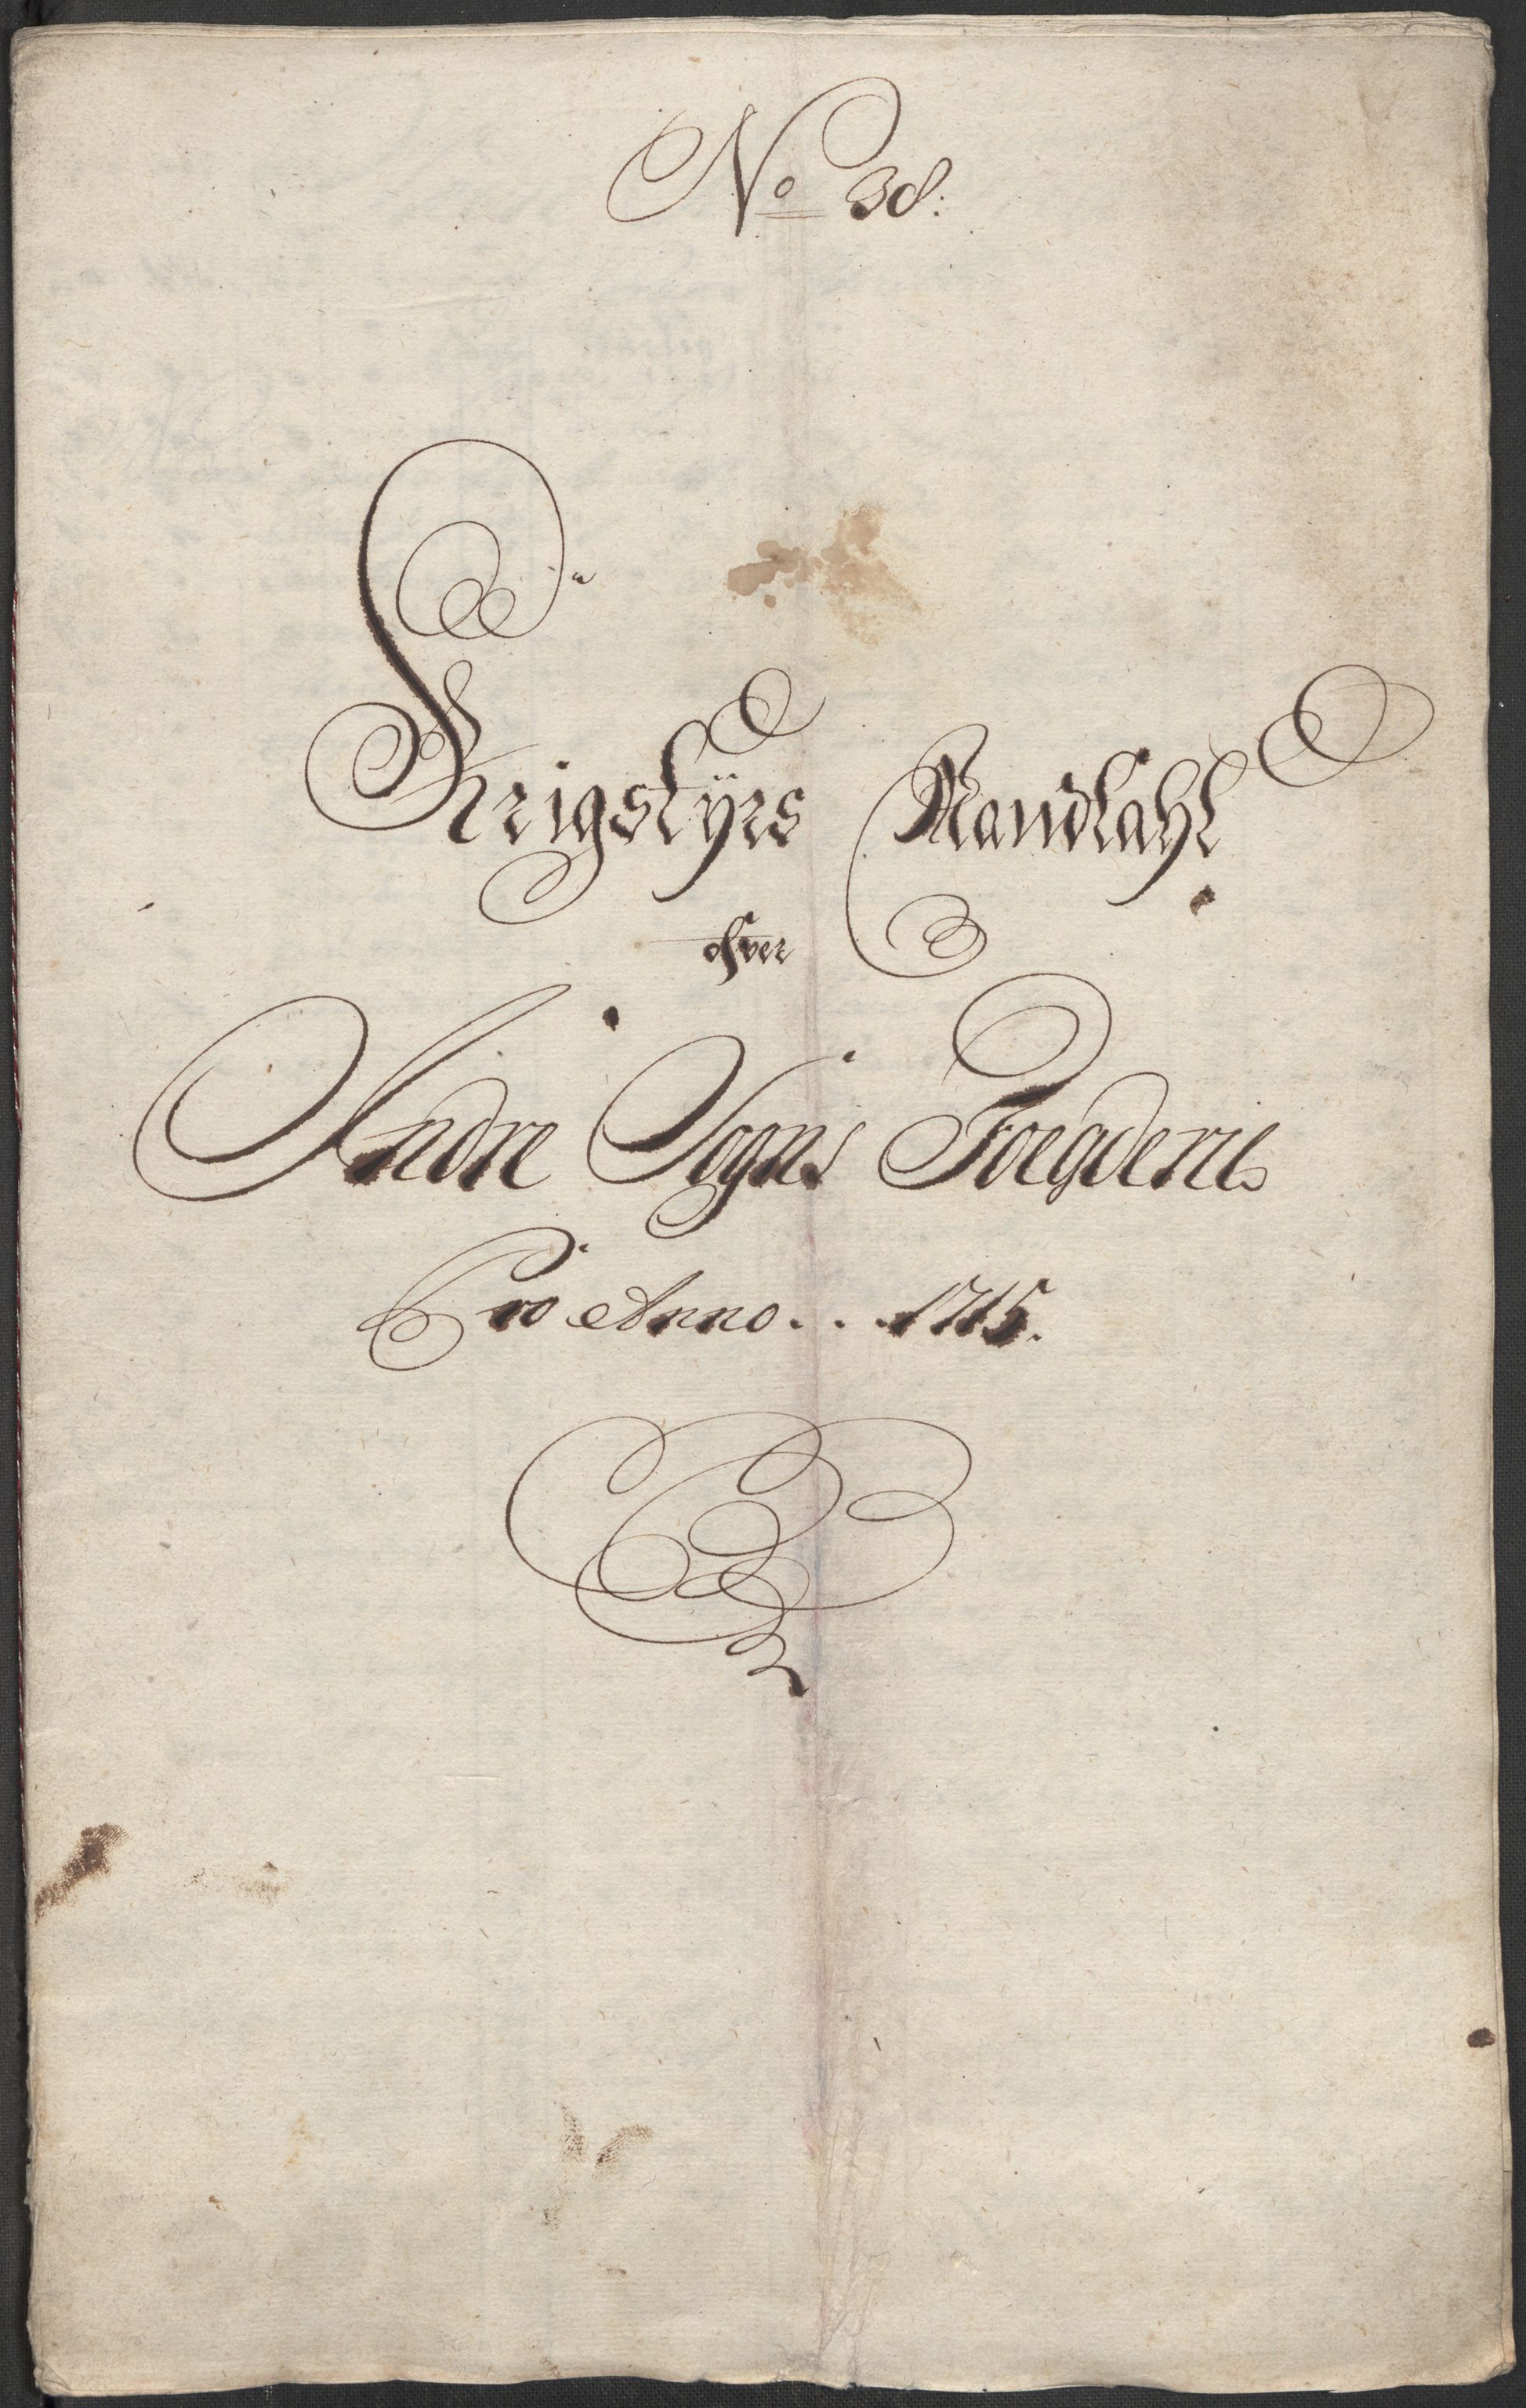 No 38:
Krigstÿrs Mandtahl
ofver
Indre Sogns Foegderie
Pro Anno . . . 1715.